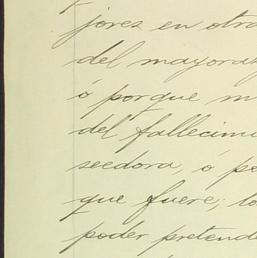 jores en otra
del mayoraz
ó porque m
del fallecimi
seedora, ó po
que fuere; lo
poder pretende